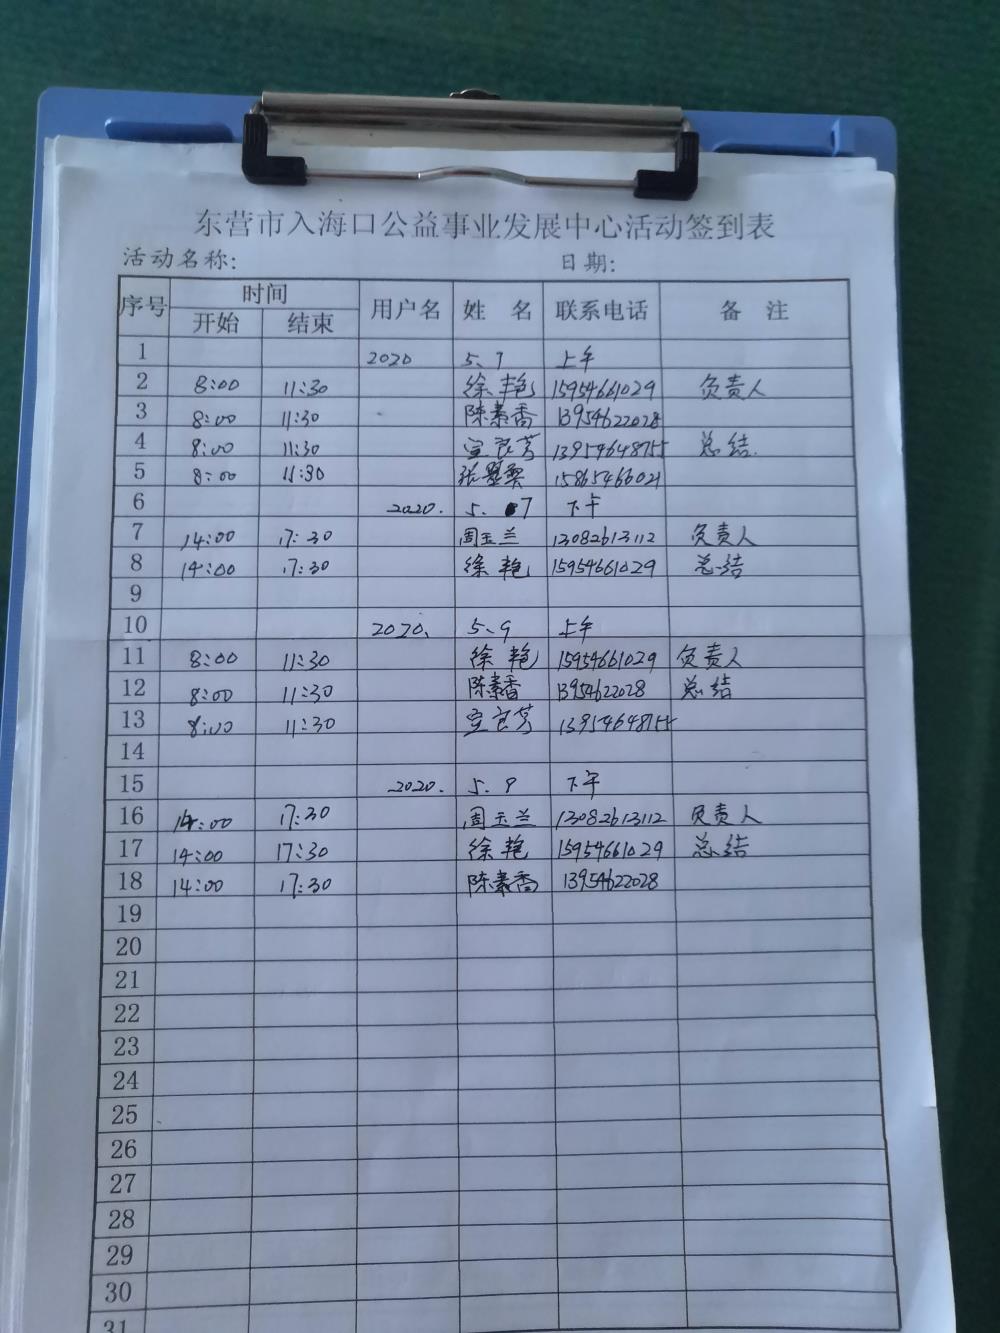 东营市入海口公益事业发展中心活动签到表
活动名称: 日期:
序号 时间 用户名 姓 名 联系电话 备 注
开始 结束
1 2020 5、7 上午
2 8:00 11:30 徐艳 15954661029 负责人
3 8:00 11:30 陈素香 13954622028
4 8:00 11:30 宣良芳 13954648755 总结.
5 8:00 11:30 15865466021
6 2020. 5. 7 下午
7 14:00 17:30 周玉兰 13082613112 负责人
8 14:00 17:30 徐艳 15954661029 总结
9
10 2020. 5、9 上午
11 8:00 11:30 徐艳 15954661029 负责人
12 8:00 11:30 陈素香 13954622028 总结
13 8:00 11:30 宣良芳 13954648755
14
15 2020. 5. 9 下午
16 14:00 17:30 周玉兰 13082613112 负责人
17 14:00 17:30 徐艳 15954661029 总结
18 14:00 17:30 陈素香 13954622028
19
20
21
22
23
24
25
26
27
28
29
30
31